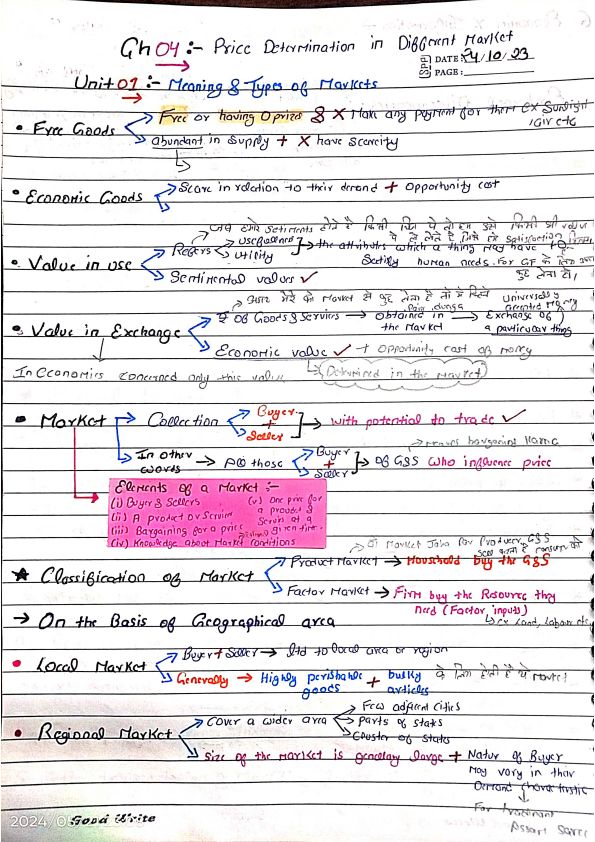 Ch 04 :- Price Determination in Different Market
DATE: 24/10/23
PAGE:
Unit 01 :- Meaning & Types of Markets
• Free Goods
Free or having 0 prize & X Make any payment for them ex Sunlight, Air etc
abundant in Supply + X have Scarcity
• Economic Goods
Scare in relation to their demand + Opportunity cost
• Value in use
Refers
usefullness
utility
the attributes which a thing may have to
Satisfy human needs. For
Sentimental values ✓
• Value in Exchange
अगर मेरे को Market से कुछ लेना है तो मे
₹ of Goods & Services → obtained in the Market → Exchange of a particular thing
Universally accepted Money
Economic value ✓ + Opportunity cost of money
In Economics concerned only this value
Determined in the Market
• Market
Collection
Buyer
+
Seller
with potential to trade ✓
In other words → All those
Buyer
+
Seller
Of G&S who influence price
Means bargaining
Elements of a Market :-
(i) Buyer & Sellers
(ii) A product or Service
(iii) Bargaining for a price
(iv) Knowledge about Market conditions
(v) One price for a product & Servis at a given time.
★ Classification of Market
Product Market → Household buy the G&S
Factor Market → Firm buy the Resource they need (Factor inputs)
ex Land, Labour etc.
→ On the Basis of Geographical area
• Local Market
Buyer + Seller → ltd to local area or region
Generally → Highly perishable goods + bulky articles के लिए होती है ये Market
• Regional Market
Cover a wider area
Few adjacent cities
Parts of stats
Cluster of stats
Size of the market is generally large + Natur of Buyer
May vary in their
Demand Charactristic
2024/0
Good Write